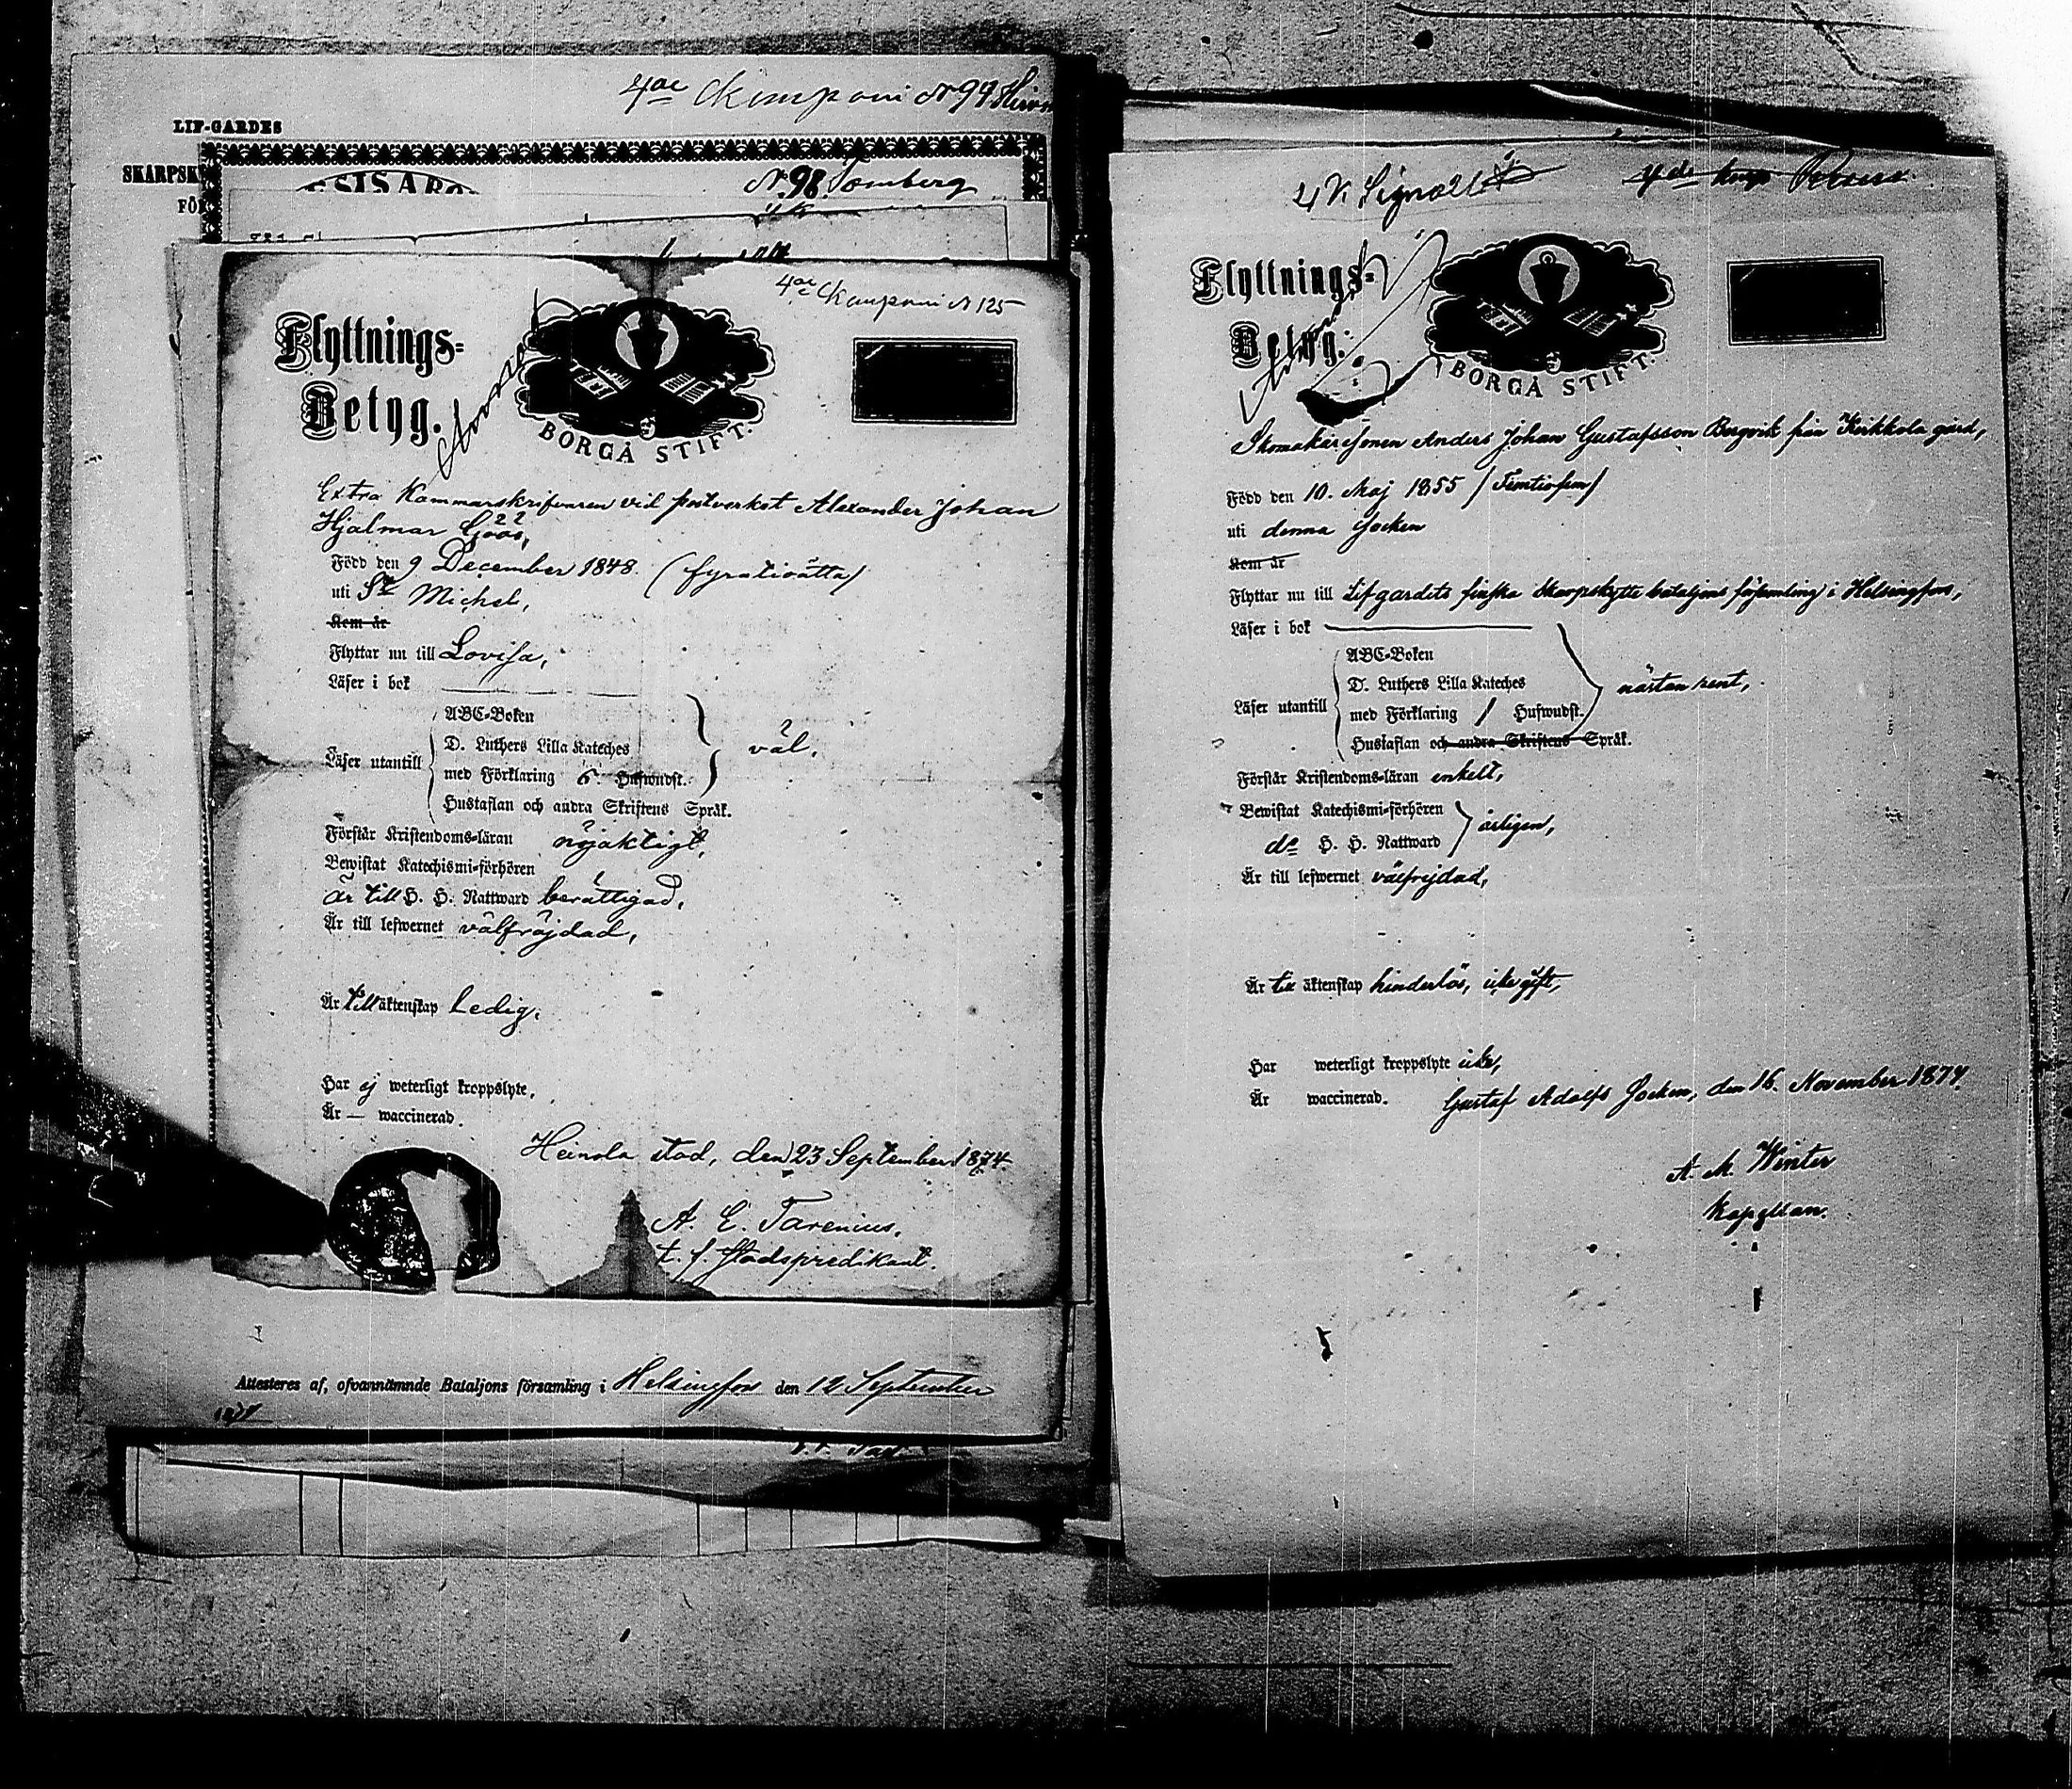 4de Kompani N 94
LIF-GARDES
SKARPSK
FÖR
N. 98. Tomberg
4de Kompani N 125
Flyttnings-
Betyg.
BORGÅ STIFT.
Extra Kammarskrifvaren vid postverket Alexander Johan
Hjalmar Göös,
Född den 9 December 1848. (fyratioåtta)
uti St Michel,
Kom år
Flyttar nu till Lovisa,
Läser i bok
ABC-Boken
D. Luthers Lilla Kateches
Läser utantill
med Förklaring 6 Hufwudst.
väl,
Hustaflan och andra Skriftens Språk.
Förstår Kristendoms-läran nöjaktigt,
Bewistat Katechismi-förhören
är till H. H. Nattward berättigad,
Är till lefwernet välfräjdad,
Är till äktenskap ledig.
Har ej weterligt kroppslyte.
Är — waccinerad.
Heinola stad, den 23 September 1874.
A. E. Tarenius,
t. f. Stadspredikant.
Attesteras af, ofvannämnde Bataljons församling i Helsingfors den 12 September
1874
4 K. Signalist
4de komp
Flyttnings-
Betyg.
BORGÅ STIFT.
Skomakaresonen Anders Johan Gustafsson Bergvik från Kirkkola gård,
Född den 10. Maj 1855 / Femtiofem /
uti denna socken
Kom år
Flyttar nu till Lifgardets finska Skarpskytte bataljons församling i Helsingfors,
Läser i bok
ABC-Boken
D. Luthers Lilla Kateches
Läser utantill
med Förklaring / Hufwudst.
nästan rent,
Hustaflan och andra Skriftens Språk.
Förstår Kristendoms-läran enkelt,
Bewistat Katechismi-förhören
do H. H. Nattward
årligen,
Är till lefwernet välfrejdad,
Är till äktenskap hinderlös, icke gift,
Har weterligt kroppslyte icke,
Är waccinerad.
Gustaf Adolfs Socken, den 16. November 1874.
A. M. Winter
Kapellan.